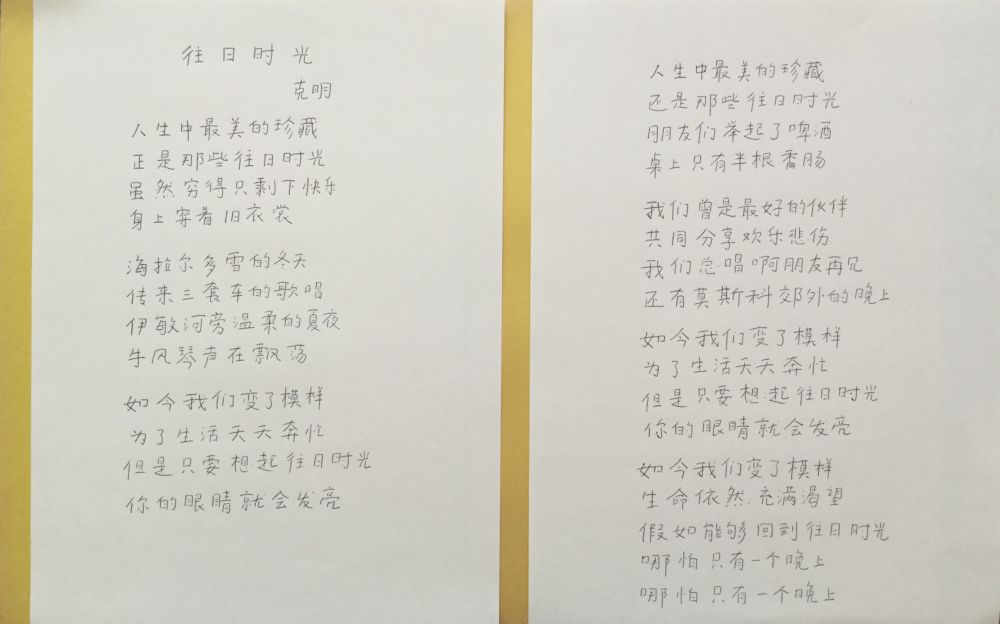 往日时光
克明
人生中最美的珍藏
正是那些往日时光
虽然穷得只剩下快乐
身上穿着旧衣裳
海拉尔多雪的冬天
传来三套车的歌唱
伊敏河旁温柔的夏夜
手风琴声在飘荡
如今我们变了模样
为了生活天天奔忙
但是只要想起往日时光
你的眼睛就会发亮
人生中最美的珍藏
还是那些往日时光
朋友们举起了啤酒
桌上只有半根香肠
我们曾是最好的伙伴
共同分享欢乐悲伤
我们总唱啊朋友再见
还有莫斯科郊外的晚上
如今我们变了模样
为了生活天天奔忙
但是只要想起往日时光
你的眼睛就会发亮
如今我们变了模样
生命依然充满渴望
假如能够回到往日时光
哪怕只有一个晚上
哪怕只有一个晚上